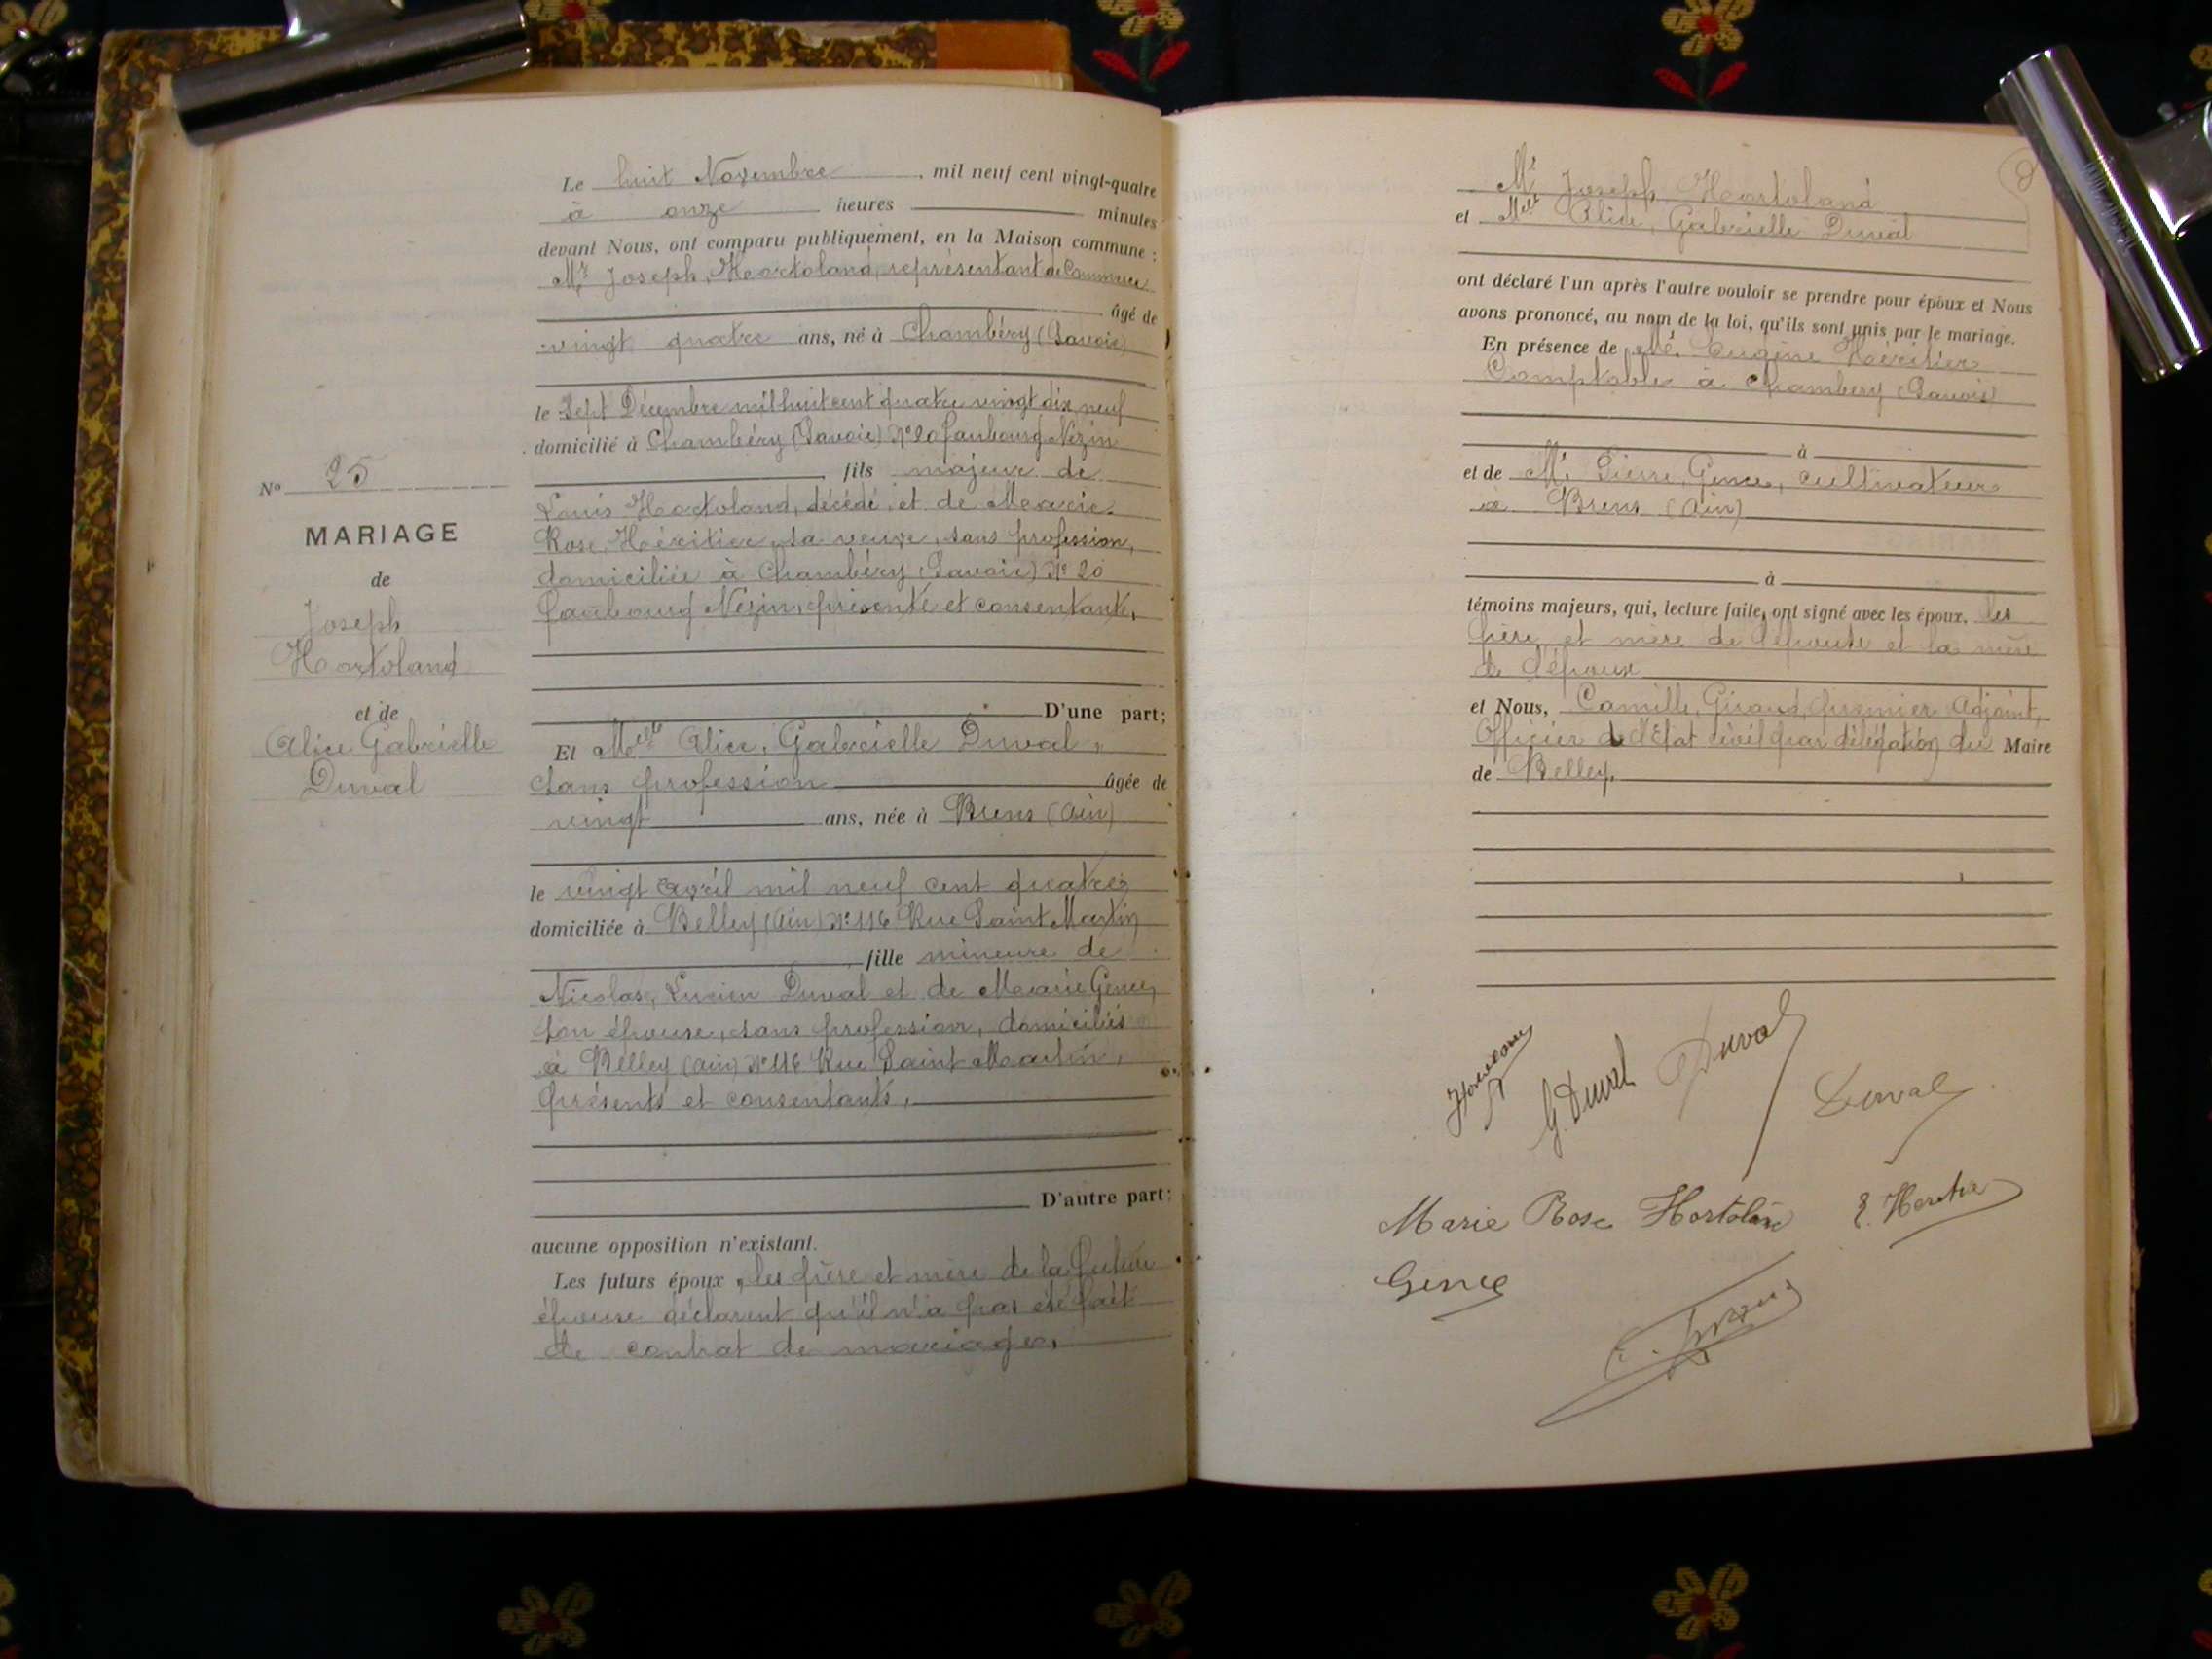 Le huit Novembre, mil neuf cent vingt-quatre
à onze heures minutes
devant Nous, ont comparu publiquement, en la Maison commune :
Mr Joseph, Hortoland, représentant de Commerce
âgé de
vingt quatre ans, né à Chambéry (Savoie)
le Sept Décembre mil huit cent quatre vingt dix neuf
domicilié à Chambéry (Savoie) N° 20 faubourg Nézin
fils majeur de
Louis Hortoland, décédé, et de Marie
Rose, Héritier, sa veuve, sans profession,
domiciliée à Chambéry (Savoie) N° 20
faubourg Nézin, présente et consentante,
D'une part;
Et Melle Alice, Gabrielle Duval,
sans profession âgée de
vingt ans, née à Brens (Ain)
le vingt avril mil neuf cent quatre,
domiciliée à Belley (Ain) N° 116 Rue Saint Martin
fille mineure de
Nicolas, Lucien Duval et de Marie Gence,
son épouse, sans profession, domiciliés
à Belley (Ain) N° 116 Rue Saint Martin,
présents et consentants,
D'autre part;
aucune opposition n'existant.
Les futurs époux, les père et mère de la future
épouse déclarent qu'il n'a pas été fait
de contrat de mariage,
N° 25
MARIAGE
de
Joseph
Hortoland
et de
Alice Gabrielle
Duval
Mr Joseph, Hortoland
et Melle Alice, Gabrielle Duval
ont déclaré l'un après l'autre vouloir se prendre pour époux et Nous
avons prononcé, au nom de la loi, qu'ils sont unis par le mariage.
En présence de Mr. Eugène Héritier
Comptable à Chambéry (Savoie)
à
et de Mr Pierre, Gence, cultivateur
à Brens (Ain)
à
témoins majeurs, qui, lecture faite, ont signé avec les époux, les
père et mère de l'épouse et la mère
de l'époux
et Nous, Camille, Giraud, premier Adjoint,
Officier de l'Etat civil par délégation du Maire
de Belley.
Hortoland
G. Duval
Duval
Duval
Marie Rose Hortoland
E. Heritier
Gence